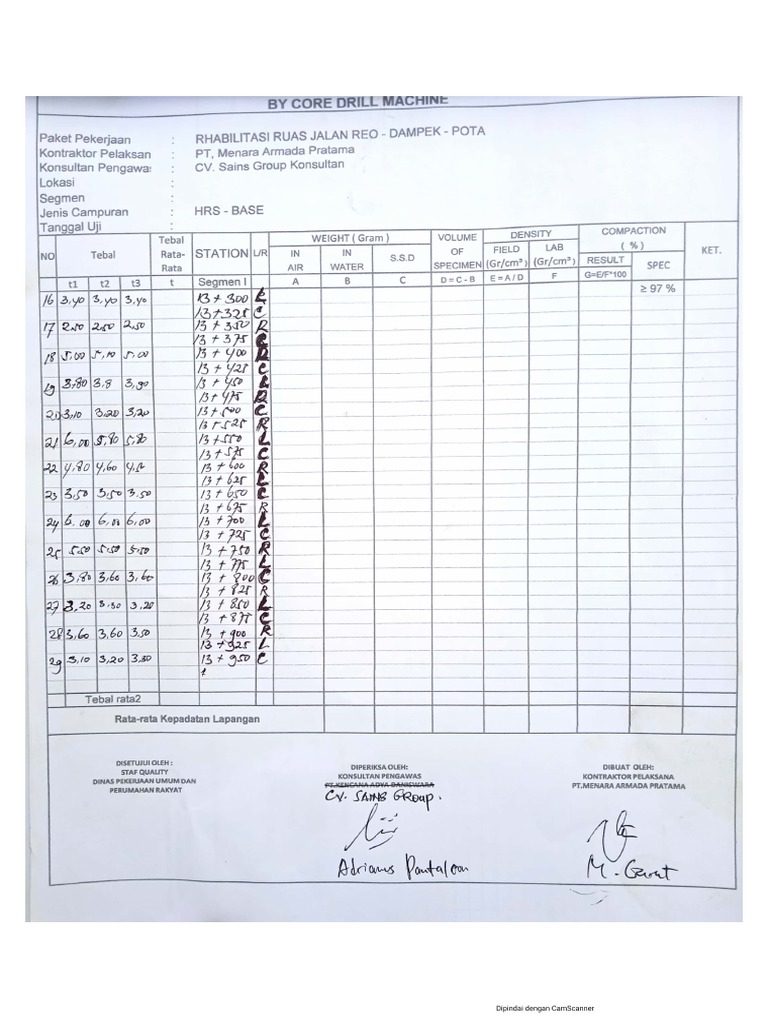 BY CORE DRILL MACHINE
Paket Pekerjaan : RHABILITASI RUAS JALAN REO - DAMPEK - POTA
Kontraktor Pelaksan : PT, Menara Armada Pratama
Konsultan Pengawa : CV. Sains Group Konsultan
Lokasi :
Segmen :
Jenis Campuran : HRS - BASE
Tanggal Uji :
NO Tebal Tebal Rata-Rata STATION L/R WEIGHT ( Gram ) VOLUME OF SPECIMEN DENSITY COMPACTION ( % ) KET.
IN AIR IN WATER S.S.D FIELD (Gr/cm³) LAB (Gr/cm³) RESULT SPEC
t1 t2 t3 t Segmen I A B C D = C - B E = A / D F G=E/F*100
≥ 97 %
16 3,40 3,40 3,40 13 + 300 L
13 + 325 C
17 2.50 2.50 2.50 13 + 350 R
13 + 375
18 5,00 5,10 5.00 13 + 400
13 + 425 C
19 3,80 3,8 3,90 13 + 450 L
13 + 475 R
20 3,10 3,20 3,20 13 + 500 C
13 + 525 R
21 6,00 5,80 5,80 13 + 550 L
13 + 575 C
22 4,80 4,60 13 + 600 R
13 + 625 L
23 3,50 3,50 3,50 13 + 650 C
13 + 675 R
24 6,00 6,00 6,00 13 + 700 L
13 + 725 C
25 5.50 5.50 5.50 13 + 750 R
13 + 775 L
26 3,80 3,60 3,60 13 + 800 C
13 + 825 R
27 3,20 3.30 3,20 13 + 850 L
13 + 875 C
28 3,60 3,60 3,50 13 + 900 R
13 + 925 L
29 3,10 3,20 3,30 13 + 950 C
Tebal rata2
Rata-rata Kepadatan Lapangan
DISETUJUI OLEH :
STAF QUALITY
DINAS PEKERJAAN UMUM DAN
PERUMAHAN RAKYAT
DIPERIKSA OLEH:
KONSULTAN PENGAWAS
PT.KENCANA ADYA DANISWARA
CV. SAINS GROUP.
Adrianus Pantaleon
DIBUAT OLEH:
KONTRAKTOR PELAKSANA
PT.MENARA ARMADA PRATAMA
Dipindai dengan CamScanner